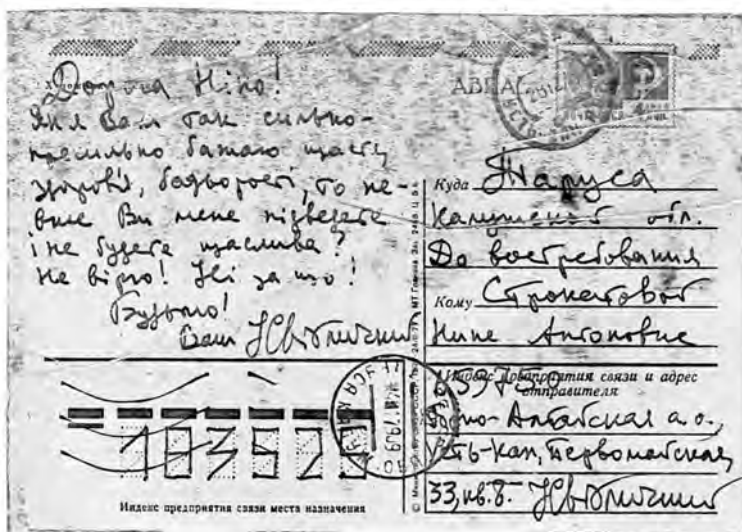 Дорога Ніно!
Як я Вам так сильно-
пресильно бажаю щастя,
здоров'я, бадьорості, то не-
вже Ви мене підведете
і не будете щаслива?
Не вірю! Ні за що!
Будьмо!
Ваш ІСвітличний
АВИА
Куда Таруса
Калужской обл.
До востребования
Кому Строкатовой
Нине Антоновне
Индекс предприятия связи и адрес
отправителя
Горно-Алтайская а.о.,
Усть-Кан, Первомайская,
33, кв. 8. ІСвітличний
Индекс предприятия связи места назначения